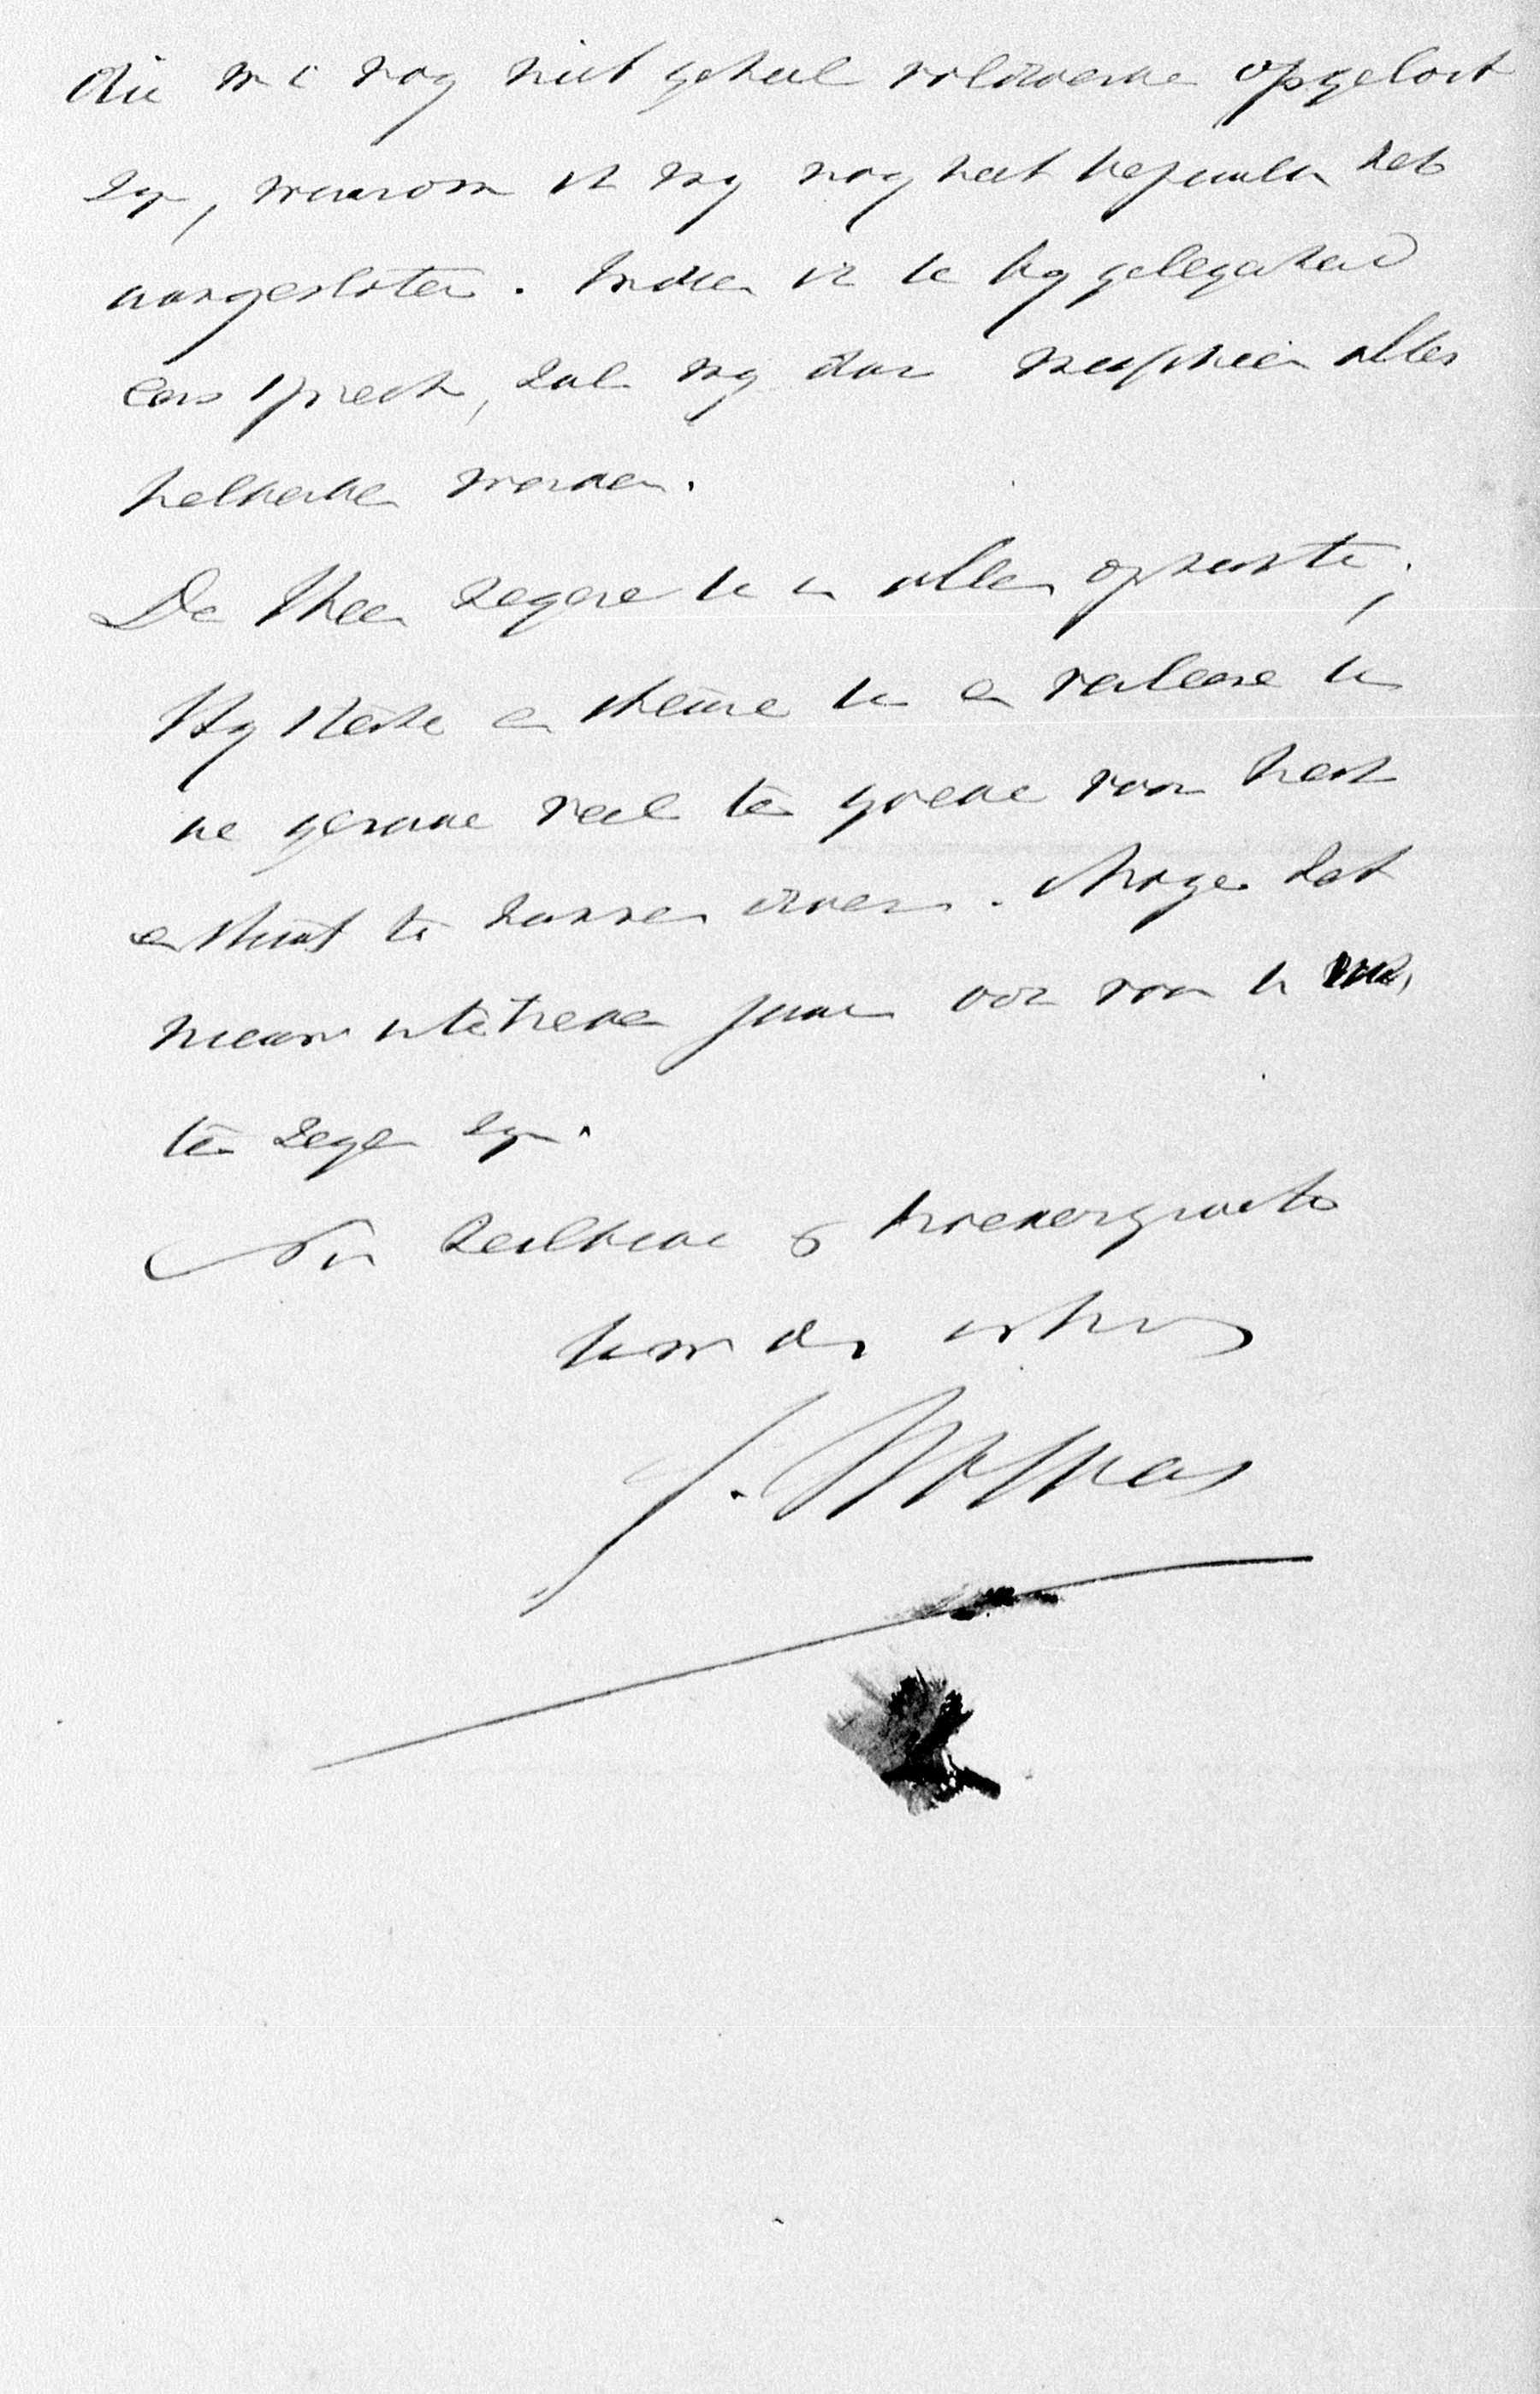 die m i nog niet geheel voldoende opgelost
zijn, waarom ik mij nog niet bepaald heb
aangesloten. Indien ik U bij gelegenheid
eens spreek, zal mij dan misschien alles
helderder worden.
De Heer zegene U in alle opzichte;
Hij sterke en steune U en verleene U
de genade veel ten goede voor kerk
en staat te kunnen doen. Moge het
nieuw intetreden jaar ook voor U
ten zegen zijn.
Na heilbede & broedergroete
Uw dw
J.